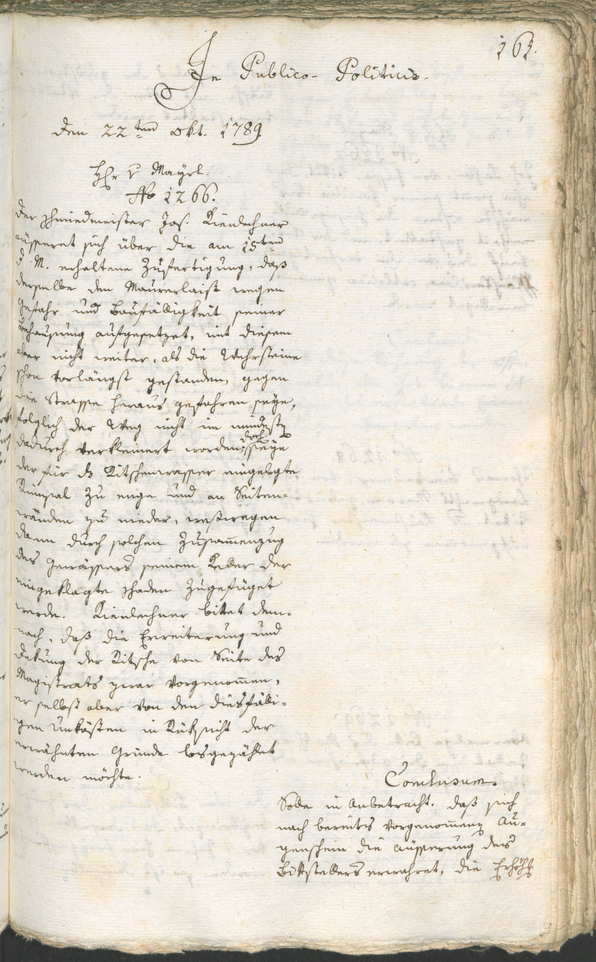 161.
In Publico-Politicis.
Den 22ten Okt. 1789
Hr. v. Mayrl.
No 1266.
Der Schmiedmeister Jos. Kienlechner
äusseret sich über die am 15ten
d. M. erhaltene Zufertigung, daß
derselbe den Maurerlaist wegen
Gefahr und Baufälligkeit seiner
Behausung aufgesetzet, mit diesem
aber nicht weiter, als die Wehrsteine
schon vorlängst gestanden, gegen
die Strasse hinaus gefahren seye,
folglich der Weg nicht im mindesten
dadurch verkleinert worden, doch seye
der für das Ritschenwasser eingelegte
Runzal zu enge und an Seiten-
wänden zu nieder, weßwegen
dann durch solchen Zusammenzug
des Gewässers seinem Keler der
eingeklagte Schaden zugefüget
werde. Kienlechner bittet dem-
nach, daß die Erweiterung und
Dekung der Ritsche von Seite des
Magistrats zwar vorgenommen,
er selbst aber von den diesfälli-
gen Unkösten in Rüksicht der
erwähnten Gründe losgezählet
werden möchte.
Conclusum.
Seie in Anbetracht, daß sich
nach bereits vorgenommenen Au-
genschein die äusserung des
Bittstellers erwahret, die